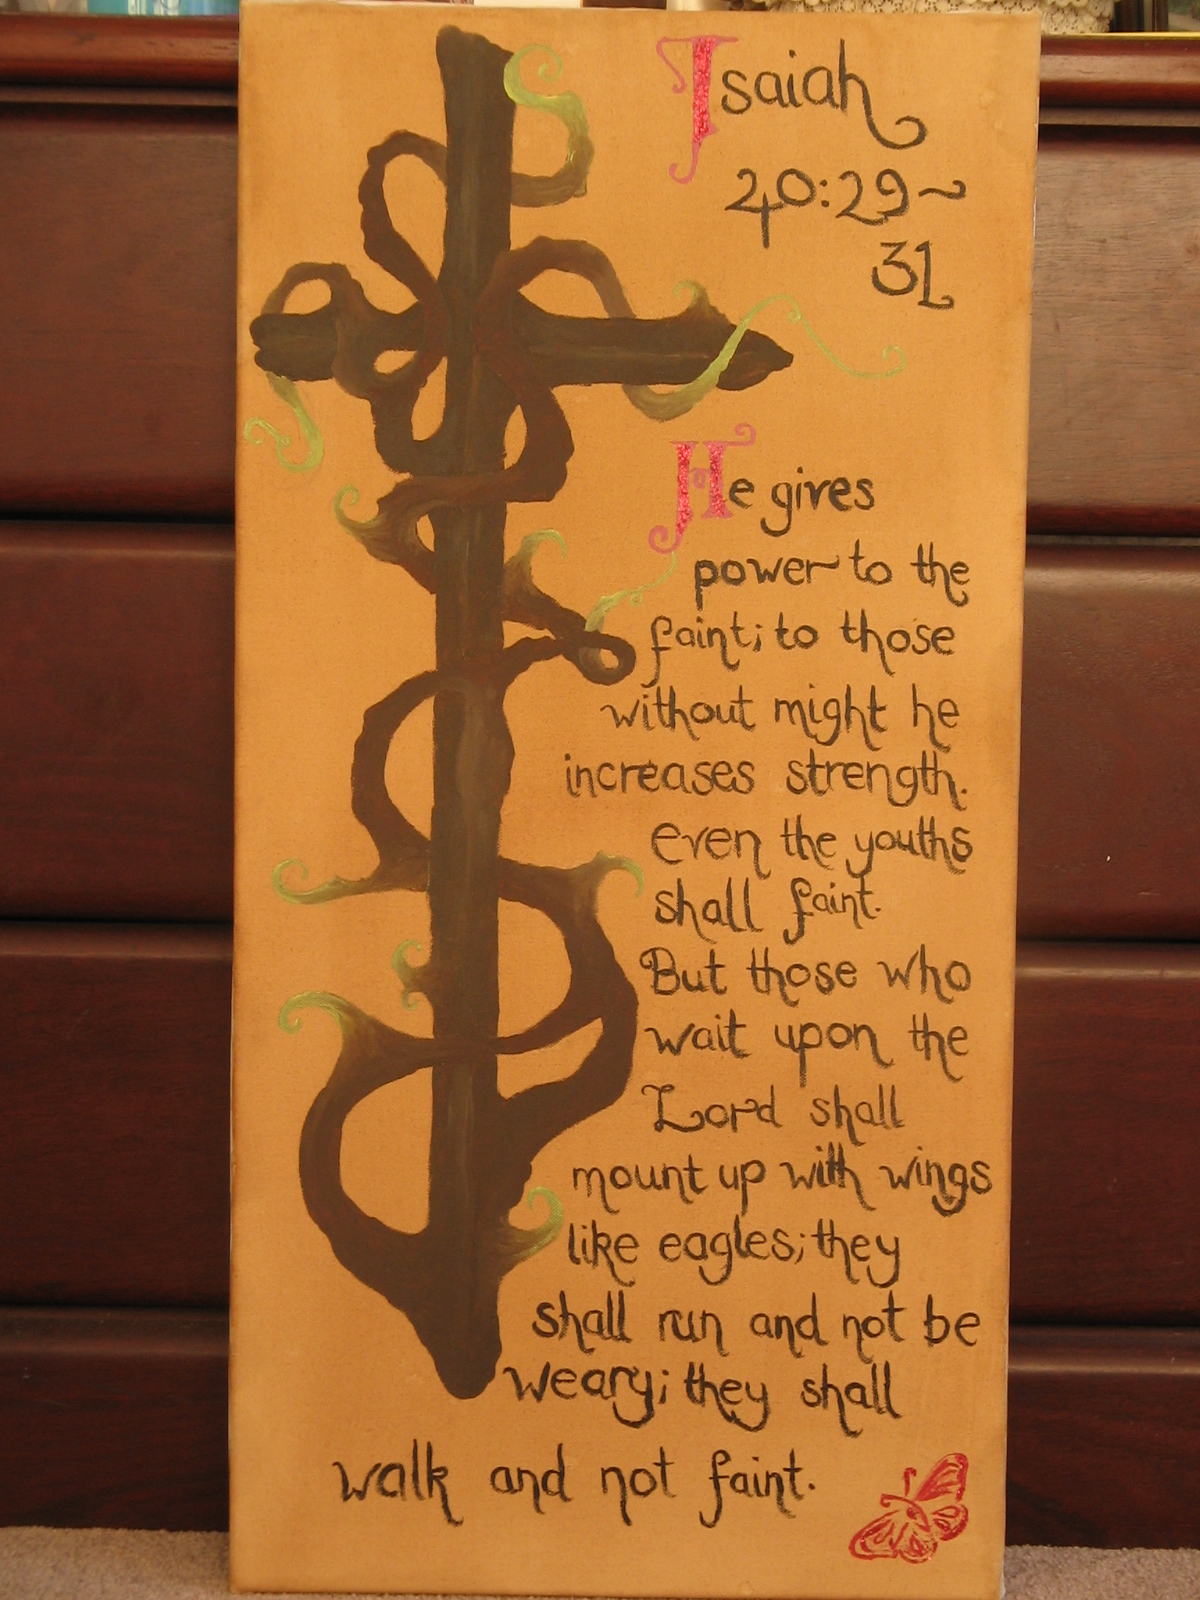 Isaiah
40:29~
31
He gives
power to the
faint; to those
without might he
increases strength.
even the youths
shall faint.
But those who
wait upon the
Lord shall
mount up with wings
like eagles; they
shall run and not be
weary; they shall
walk and not faint.